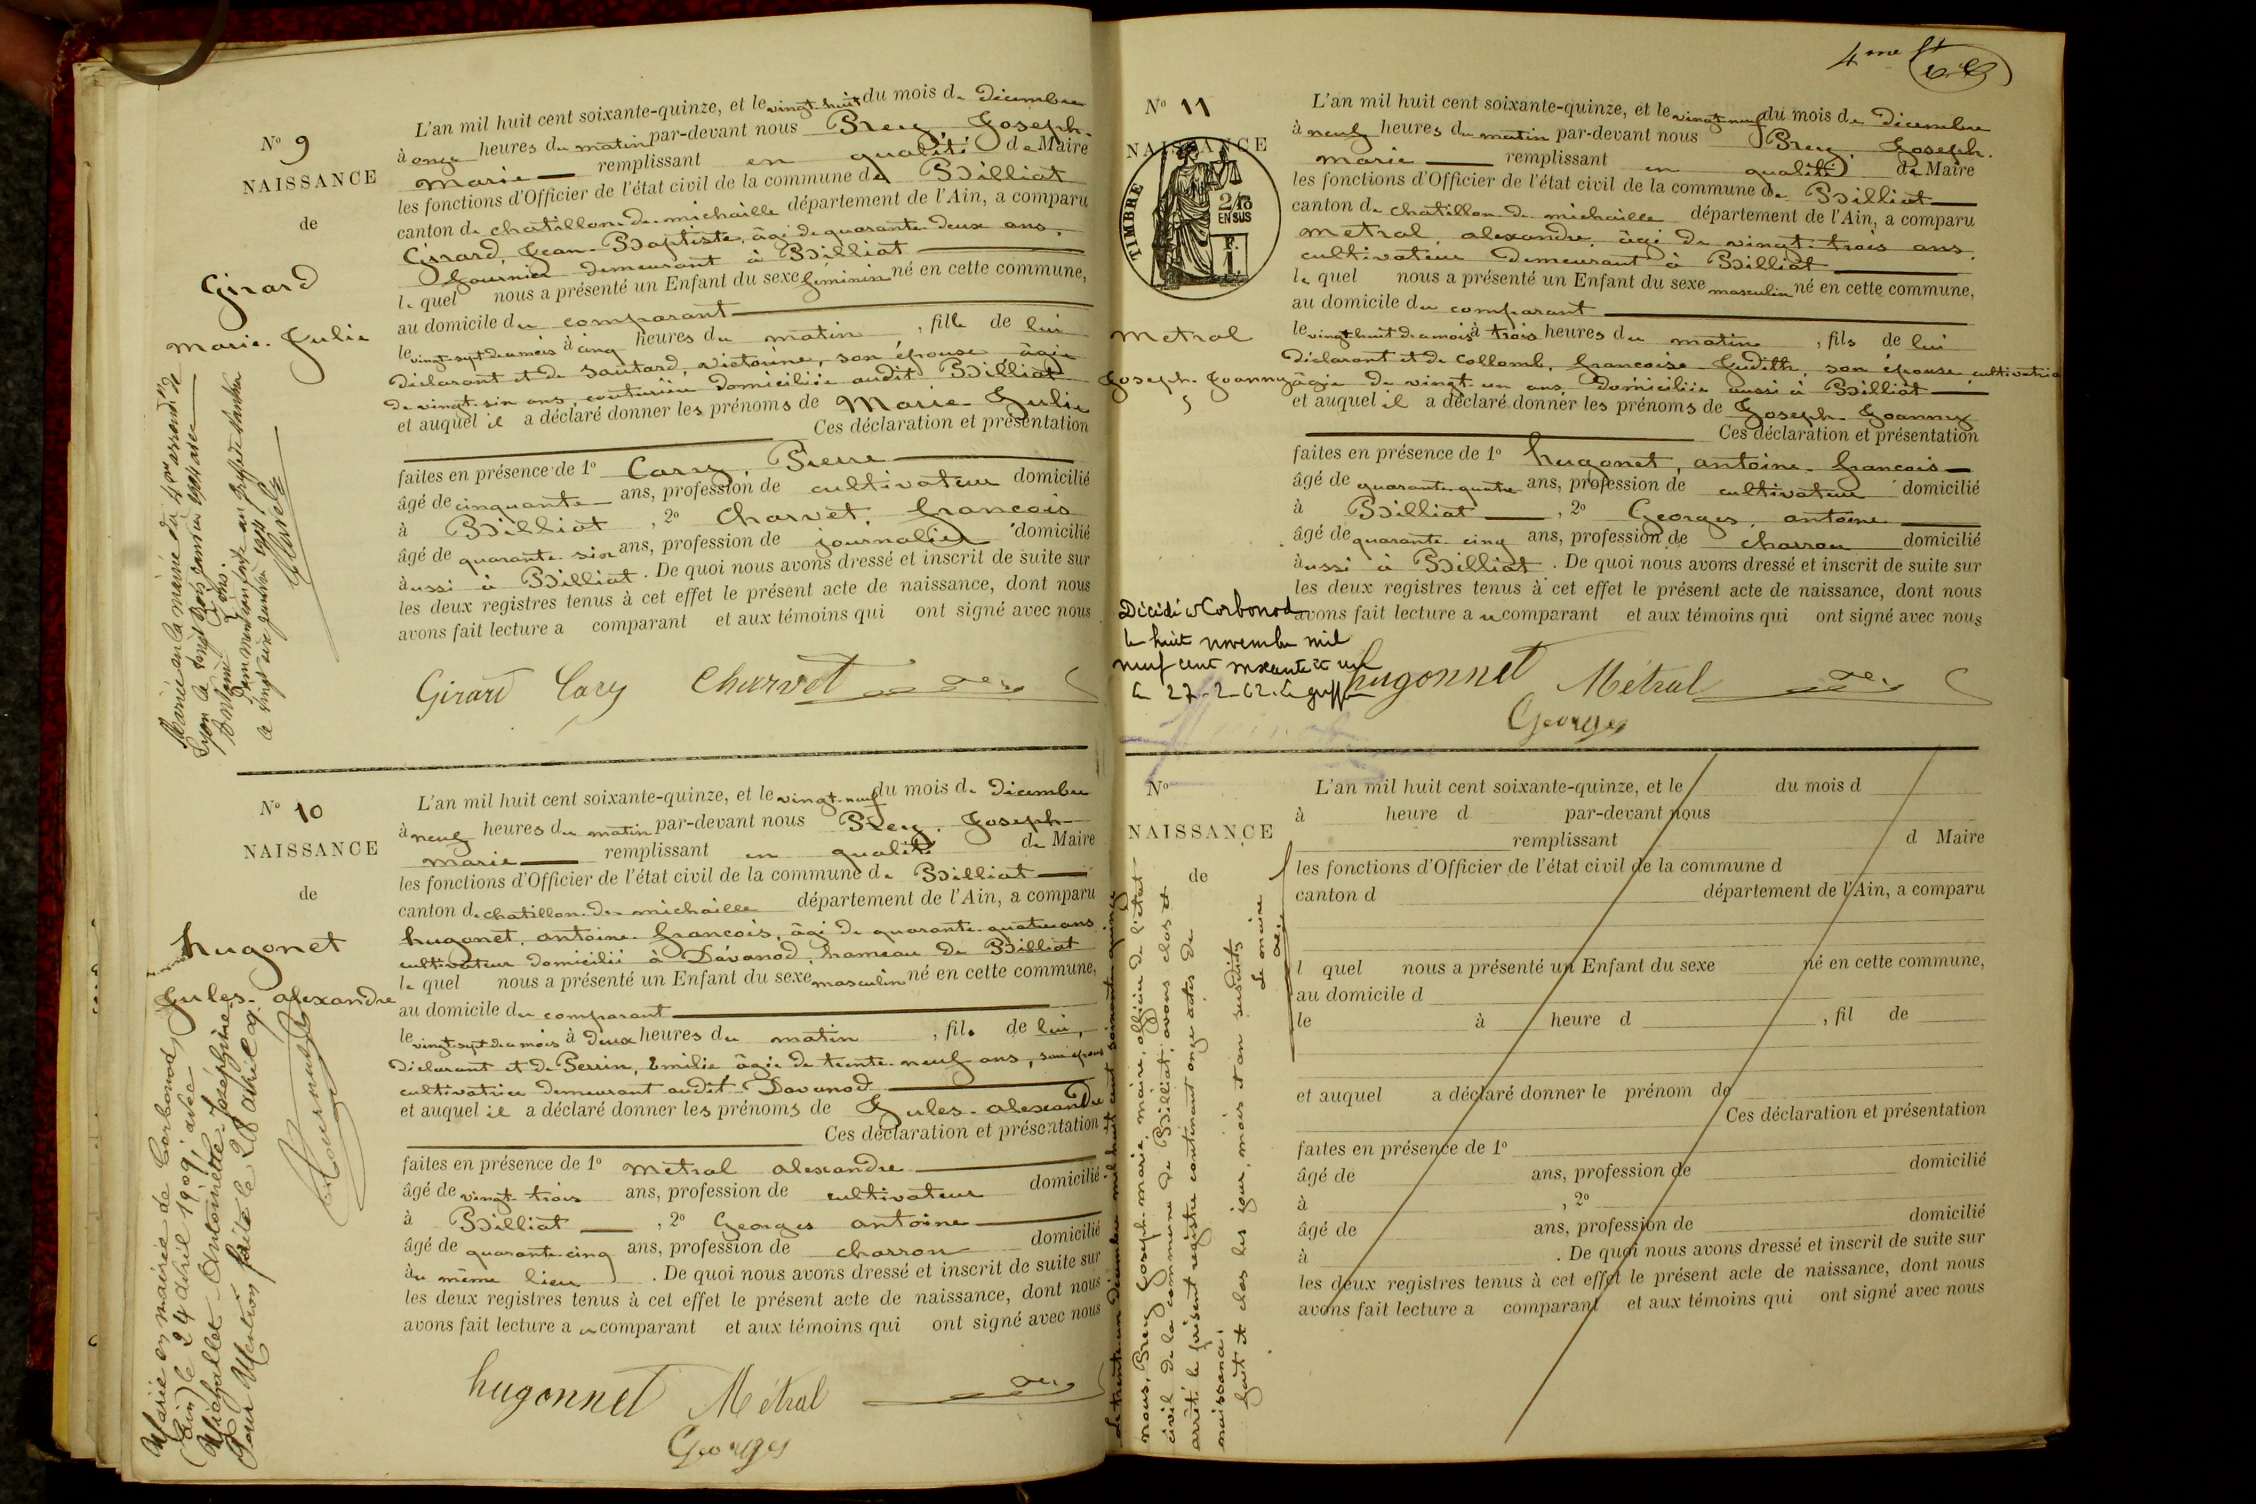 N° 9
NAISSANCE
de
Girard
Marie-Julie
L'an mil huit cent soixante-quinze, et le vingt-huit du mois de décembre
à onze heures du matin par-devant nous Prey, Joseph-
marie remplissant en qualité de Maire
les fonctions d'Officier de l'état civil de la commune de Billiat
canton de chatillon-de-michaille département de l'Ain, a comparu
Girard, Jean-Baptiste, âgé de quarante-deux ans,
fournier demeurant à Billiat
le quel nous a présenté un Enfant du sexe féminin né en cette commune,
au domicile du comparant
le vingt-sept de ce mois à cinq heures du matin, fille de lui
déclarant et de Sautard, victorine, son épouse âgée
de vingt-six ans, couturière domiciliée audit Billiat
et auquel il a déclaré donner les prénoms de Marie-Julie
Ces déclaration et présentation
faites en présence de 1° Cary, Pierre
âgé de cinquante ans, profession de cultivateur domicilié
à Billiat, 2° Charvet, francois
âgé de quarante-six ans, profession de journalier domicilié
aussi à Billiat. De quoi nous avons dressé et inscrit de suite sur
les deux registres tenus à cet effet le présent acte de naissance, dont nous
avons fait lecture a comparant et aux témoins qui ont signé avec nous
Girard Cary Charvet
Mariée en la mairie du 4me arrond. de
Lyon le vingt trois janvier avec
N° 10
NAISSANCE
de
hugonet
Jules-alexandre
L'an mil huit cent soixante-quinze, et le vingt-neuf du mois de décembre
à neuf heures du matin par-devant nous Prey, Joseph-
marie remplissant en qualité de Maire
les fonctions d'Officier de l'état civil de la commune de Billiat
canton de chatillon-de-michaille département de l'Ain, a comparu
hugonet, antoine-francois, âgé de quarante-quatre ans
cultivateur domicilié à Davanod, hameau de Billiat
le quel nous a présenté un Enfant du sexe masculin né en cette commune,
au domicile du comparant
le vingt-sept de ce mois à deux heures du matin, fils de lui,
déclarant et de Perrin, Emilie âgée de trente-neuf ans, son épouse
cultivatrice demeurant audit Davanod
et auquel il a déclaré donner les prénoms de Jules-alexandre
Ces déclaration et présentation
faites en présence de 1° métral alexandre
âgé de vingt-trois ans, profession de cultivateur domicilié
à Billiat, 2° Georges antoine
âgé de quarante-cinq ans, profession de charron domicilié
au même lieu. De quoi nous avons dressé et inscrit de suite sur
les deux registres tenus à cet effet le présent acte de naissance, dont nous
avons fait lecture au comparant et aux témoins qui ont signé avec nous
hugonnet Métral
Georges
Marié en mairie de Corbonod
(Ain) le 24 avril 1909 avec
Michallet Antoinette Joséphine
Pour Mention faite le 28 avril 09.
4me
N° 11
NAISSANCE
TIMBRE
2/10
EN SUS
F.
1.
metral
Joseph-Joanny
L'an mil huit cent soixante-quinze, et le vingt-neuf du mois de décembre
à neuf heures du matin par-devant nous Prey, Joseph-
marie remplissant en qualité de Maire
les fonctions d'Officier de l'état civil de la commune de Billiat
canton de chatillon-de-michaille département de l'Ain, a comparu
metral, alexandre, âgé de vingt-trois ans,
cultivateur demeurant à Billiat
le quel nous a présenté un Enfant du sexe masculin né en cette commune,
au domicile du comparant
le vingt-huit de ce mois à trois heures du matin, fils de lui
déclarant et de Collomb, francoise-Judith, son épouse cultivatrice
âgée de vingt-un ans, domiciliée aussi à Billiat
et auquel il a déclaré donner les prénoms de Joseph-Joanny
Ces déclaration et présentation
faites en présence de 1° hugonet, antoine-francois
âgé de quarante-quatre ans, profession de cultivateur domicilié
à Billiat, 2° Georges, antoine
âgé de quarante-cinq ans, profession de charron domicilié
aussi à Billiat. De quoi nous avons dressé et inscrit de suite sur
les deux registres tenus à cet effet le présent acte de naissance, dont nous
avons fait lecture au comparant et aux témoins qui ont signé avec nous
Décédé à Corbonod
le huit novembre mil
neuf cent soixante et un
le 27-2-62. Le greffier
hugonnet Métral
Georges
N°
NAISSANCE
de
L'an mil huit cent soixante-quinze, et le du mois d
à heure d par-devant nous
remplissant d Maire
les fonctions d'Officier de l'état civil de la commune d
canton d département de l'Ain, a comparu
l quel nous a présenté un Enfant du sexe né en cette commune,
au domicile d
le à heure d , fil de
et auquel a déclaré donner le prénom de
Ces déclaration et présentation
faites en présence de 1°
âgé de ans, profession de domicilié
à , 2°
âgé de ans, profession de domicilié
à . De quoi nous avons dressé et inscrit de suite sur
les deux registres tenus à cet effet le présent acte de naissance, dont nous
avons fait lecture a comparant et aux témoins qui ont signé avec nous
Le trente-un décembre mil huit cent soixante-quinze
nous, Prey Joseph-marie, maire, officier de l'état
civil de la commune de Billiat, avons clos et
arrêté le présent registre contenant onze actes de
naissance.
fait et clos les jour, mois et an susdits.
Le maire